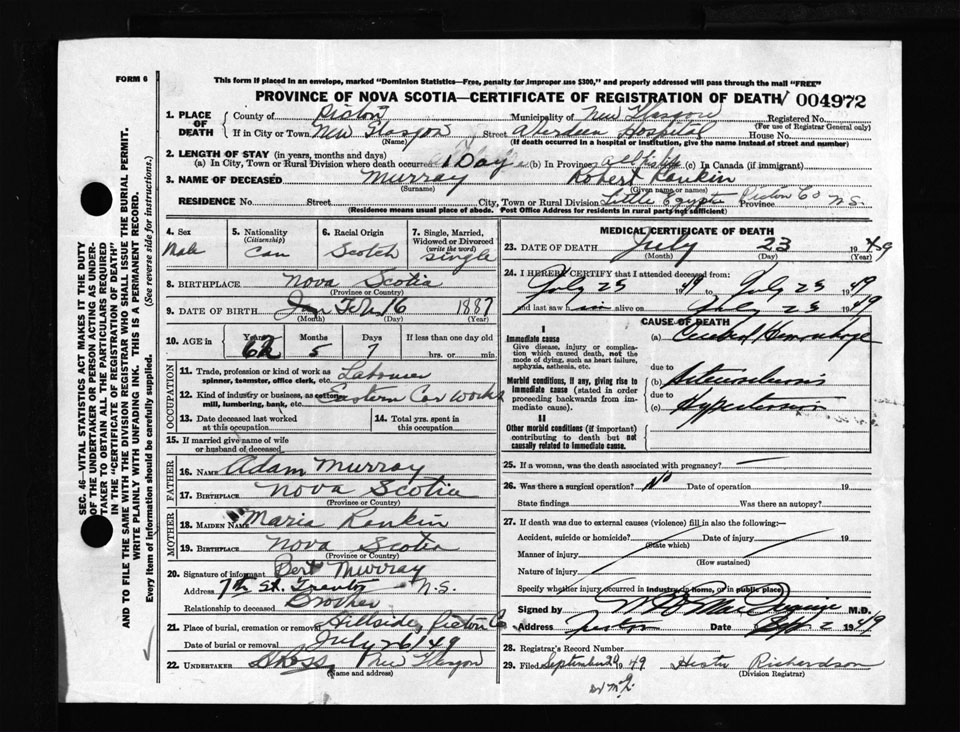 FORM 6
This form if placed in an envelope, marked "Dominion Statistics—Free, penalty for improper use $300," and properly addressed will pass through the mail "FREE"
PROVINCE OF NOVA SCOTIA—CERTIFICATE OF REGISTRATION OF DEATH 004972
1. PLACE OF DEATH
County of Pictou Municipality of New Glasgow Registered No.
(For use of Registrar General only)
If in City or Town New Glasgow Street Aberdeen Hospital House No.
(Name) (If death occurred in a hospital or institution, give the name instead of street and number)
2. LENGTH OF STAY (in years, months and days)
(a) In City, Town or Rural Division where death occurred 1 Day (b) In Province all his life (c) In Canada (if immigrant)
3. NAME OF DECEASED Murray Robert Rankin
(Surname) (Given name or names)
RESIDENCE No. Street City, Town or Rural Division Little Egypt Pictou Co Province N.S.
(Residence means usual place of abode. Post Office Address for residents in rural parts not sufficient)
4. Sex Male
5. Nationality (Citizenship) Can
6. Racial Origin Scotch
7. Single, Married, Widowed or Divorced (write the word) Single
8. BIRTHPLACE Nova Scotia
(Province or Country)
9. DATE OF BIRTH Jan Feb 16 1887
(Month) (Day) (Year)
10. AGE in Years 62 Months 5 Days 7 If less than one day
hrs. or min.
OCCUPATION
11. Trade, profession or kind of work as spinner, teamster, office clerk, etc. Labourer
12. Kind of industry or business, as cotton mill, lumbering, bank, etc. Eastern Car Works
13. Date deceased last worked at this occupation
14. Total yrs. spent in this occupation
15. If married give name of wife or husband of deceased
FATHER
16. NAME Adam Murray
17. BIRTHPLACE Nova Scotia
(Province or Country)
MOTHER
18. MAIDEN NAME Maria Rankin
19. BIRTHPLACE Nova Scotia
(Province or Country)
20. Signature of informant Bert Murray
Address 7th St. Trenton N.S.
Relationship to deceased Brother
21. Place of burial, cremation or removal Hillside, Pictou Co
Date of burial or removal July 26/49
22. UNDERTAKER New Glasgow
(Name and address)
MEDICAL CERTIFICATE OF DEATH
23. DATE OF DEATH July 23 1949
(Month) (Day) (Year)
24. I HEREBY CERTIFY that I attended deceased from:
July 23 1949 to July 23 1949
and last saw him alive on July 23 1949
CAUSE OF DEATH
I
Immediate cause
Give disease, injury or complication which caused death, not the mode of dying, such as heart failure, asphyxia, asthenia, etc.
(a) Cerebral Hemorrhage
due to
Morbid conditions, if any, giving rise to immediate cause (stated in order proceeding backwards from immediate cause).
(b)
due to
(c) Hypertension
II
Other morbid conditions (if important) contributing to death but not causally related to immediate cause.
25. If a woman, was the death associated with pregnancy?
26. Was there a surgical operation? No Date of operation 19
State findings Was there an autopsy?
27. If death was due to external causes (violence) fill in also the following:—
Accident, suicide or homicide? Date of injury 19
(State which)
Manner of injury
(How sustained)
Nature of injury
Specify whether injury occurred in industry, in home, or in public place)
Signed by M.D.
Address Date Sep 2 1949
28. Registrar's Record Number
29. Filed September 1949 Hester Richardson
(Division Registrar)
SEC. 46—VITAL STATISTICS ACT MAKES IT THE DUTY
OF THE UNDERTAKER OR PERSON ACTING AS UNDERTAKER TO OBTAIN ALL THE PARTICULARS REQUIRED
IN THE "CERTIFICATE OF REGISTRATION OF DEATH"
AND TO FILE THE SAME WITH THE DIVISION REGISTRAR WHO SHALL ISSUE THE BURIAL PERMIT.
WRITE PLAINLY WITH UNFADING INK. THIS IS A PERMANENT RECORD.
Every item of information should be carefully supplied. (See reverse side for instructions.)